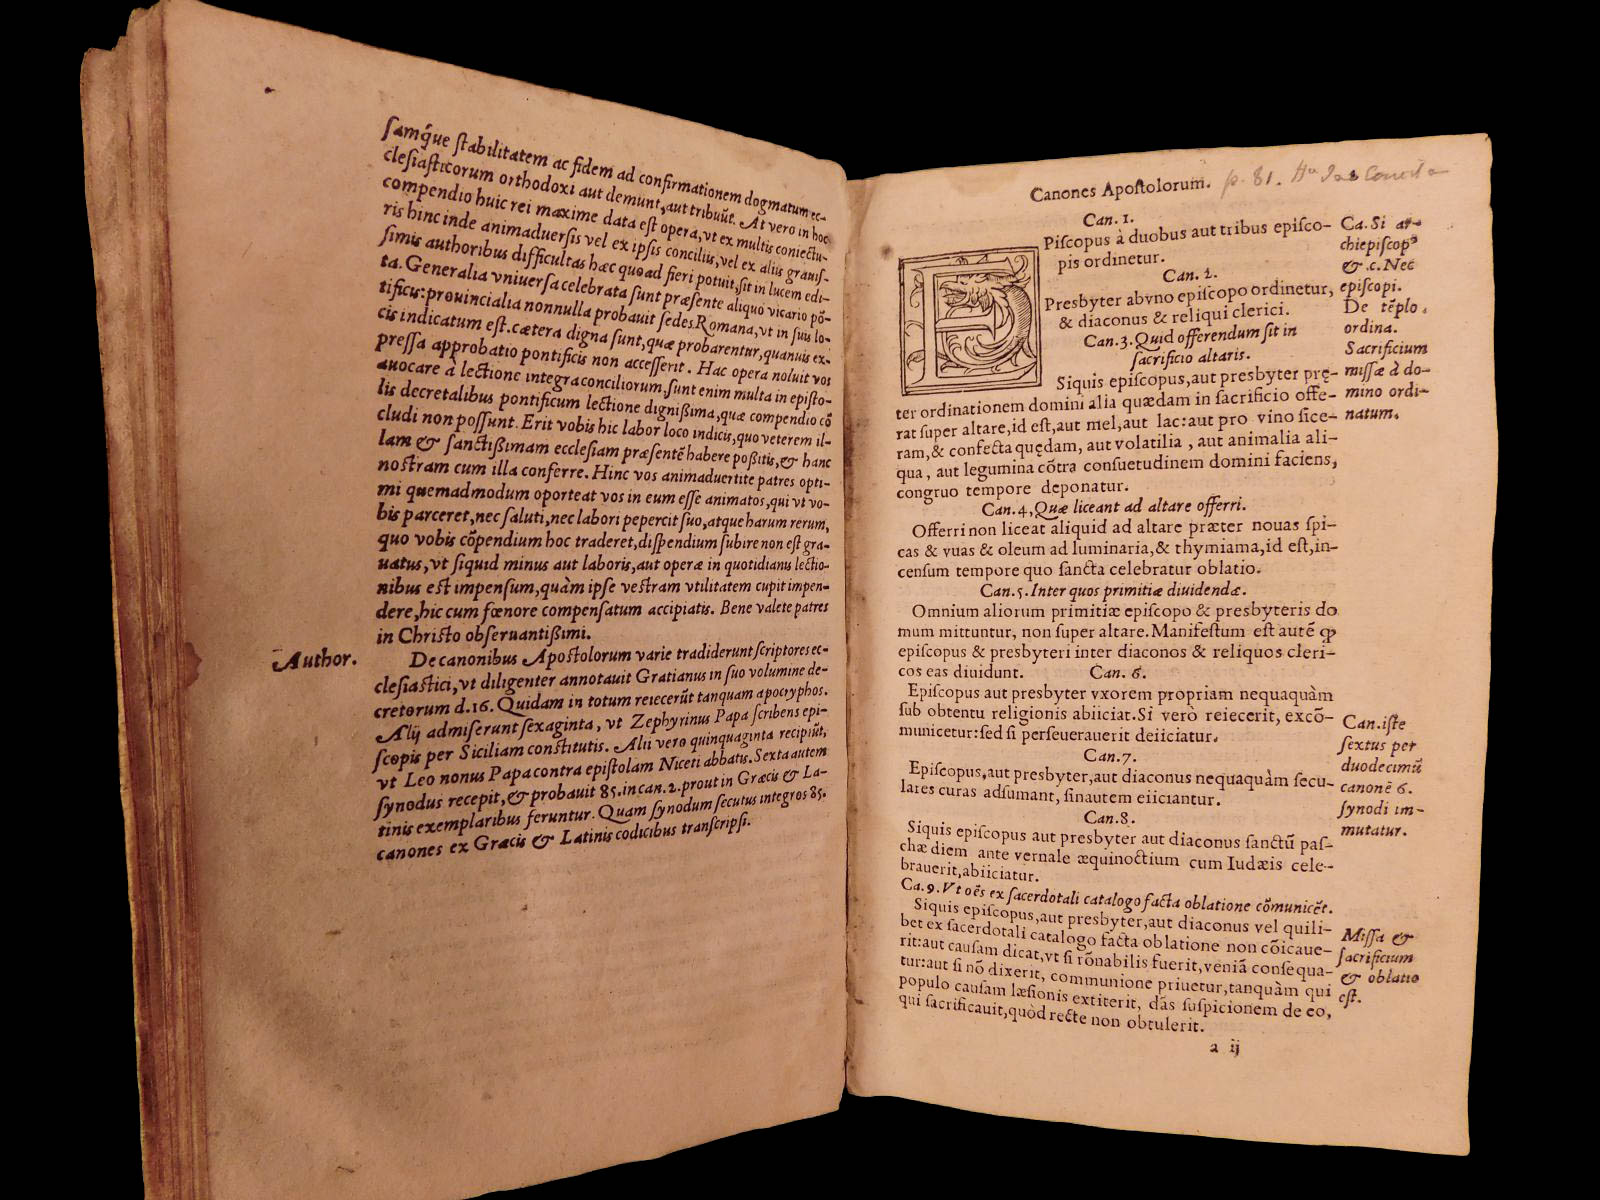 samq́ue stabilitatem ac fidem ad confirmationem dogmatum ec-
clesiasticorum orthodoxi aut demunt, aut tribuũt. At vero in hoc
compendio huic rei maxime data est opera, vt ex multis coniectu-
ris hinc inde animaduersis vel ex ipsis conciliis, vel ex aliis grauis-
simis authoribus difficultas hæc quoad fieri potuit, sit in lucem edi-
ta. Generalia vniuersa celebrata sunt præsente aliquo vicario põ-
tificis: prouincialia nonnulla probauit sedes Romana, vt in suis lo-
cis indicatum est. cætera digna sunt, quæ probarentur, quanuis ex-
pressa approbatio pontificis non accesserit. Hac opera noluit vos
auocare à lectione integra conciliorum. sunt enim multa in episto-
lis decretalibus pontificum lectione dignißima, quæ compendio cõ
cludi non possunt. Erit vobis hic labor loco indicis, quo veterem il-
lam & sanctißimam ecclesiam præsentẽ habere poßitis, & hanc
nostram cum illa conferre. Hinc vos animaduertite patres opti-
mi quemadmodum oporteat vos in eum esse animatos, qui vt vo-
bis parceret, nec saluti, nec labori pepercit suo, atque harum rerum,
quo vobis cõpendium hoc traderet, dispendium subire non est gra-
uatus, vt siquid minus aut laboris, aut operæ in quotidianis lectio-
nibus est impensum, quàm ipse vestram vtilitatem cupit impen-
dere, hic cum fœnore compensatum accipiatis. Bene valete patres
in Christo obseruantißimi.
Author.
De canonibus Apostolorum varie tradiderunt scriptores ec-
clesiastici, vt diligenter annotauit Gratianus in suo volumine de-
cretorum d.16. Quidam in totum reiecerũt tanquam apocryphos.
Alij admiserunt sexaginta, vt Zephyrinus Papa scribens epi-
scopis per Siciliam constitutis. Alii vero quinquaginta recipiũt,
vt Leo nonus Papa contra epistolam Niceti abbatis. Sexta autem
synodus recepit, & probauit 85. in can. 2. prout in Græcis & La-
tinis exemplaribus feruntur. Quam synodum secutus integros 85.
canones ex Græcis & Latinis codicibus transcripsi.
Canones Apostolorum. p. 81.
Can. 1.
EPiscopus à duobus aut tribus episco-
pis ordinetur.
Can. 2.
Presbyter ab vno episcopo ordinetur,
& diaconus & reliqui clerici.
Can. 3. Quid offerendum sit in
sacrificio altaris.
Siquis episcopus, aut presbyter prę-
ter ordinationem domini alia quædam in sacrificio offe-
rat super altare, id est, aut mel, aut lac: aut pro vino sice-
ram, & confecta quędam, aut volatilia, aut animalia ali-
qua, aut legumina cõtra consuetudinem domini faciens,
congruo tempore deponatur.
Can. 4, Quæ liceant ad altare offerri.
Offerri non liceat aliquid ad altare præter nouas spi-
cas & vuas & oleum ad luminaria, & thymiama, id est, in-
censum tempore quo sancta celebratur oblatio.
Can. 5. Inter quos primitiæ diuidendæ.
Omnium aliorum primitiæ episcopo & presbyteris do
mum mittuntur, non super altare. Manifestum est autẽ ꝙ
episcopus & presbyteri inter diaconos & reliquos cleri-
cos eas diuidunt. Can. 6.
Episcopus aut presbyter vxorem propriam nequaquàm
sub obtentu religionis abiiciat. Si verò reiecerit, excõ-
municetur: sed si perseuerauerit deiiciatur.
Can. 7.
Episcopus, aut presbyter, aut diaconus nequaquàm secu-
lares curas adsumant, sinautem eiiciantur.
Can. 8.
Siquis episcopus aut presbyter aut diaconus sanctũ pas-
chæ diem ante vernale æquinoctium cum Iudæis cele-
brauerit, abiiciatur.
Ca. 9. Vt oẽs ex sacerdotali catalogo facta oblatione cõmunicẽt.
Siquis episcopus, aut presbyter, aut diaconus vel quili-
bet ex sacerdotali catalogo facta oblatione non cõicaue-
rit: aut causam dicat, vt si rõnabilis fuerit, veniã consequa-
tur: aut si nõ dixerit, communione priuetur, tanquàm qui
populo causam læsionis extiterit, dãs suspicionem de eo,
qui sacrificauit, quòd recte non obtulerit.
a ij
Ca. Si ar-
chiepiscopꝰ
& .c. Nec
episcopi.
De tẽplo.
ordina.
Sacrificium
missæ à do-
mino ordi-
natum.
Can. iste
sextus per
duodecimũ
canonẽ 6.
synodi im-
mutatur.
Missa &
sacrificium
& oblatio
est.